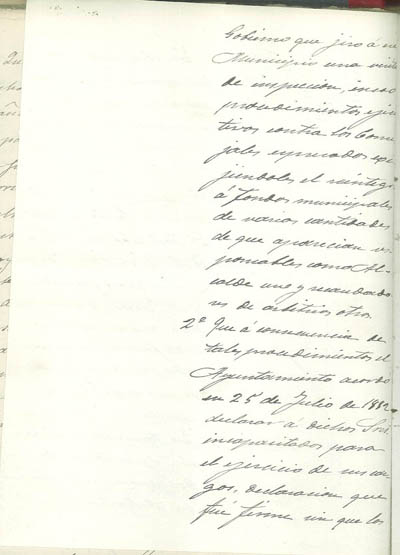 Gobierno que giró á su
Municipio una visita
de inspeccion, incoo
procedimientos ejecu
tivos contra los Conce
jales expresados exi
jiendoles el reintegro
á fondos municipales
de varias cantidades
de que aparecian res
ponsables como Al-
calde uno y recaudado
res de arbitrios otros.
2º Que á consecuencia de
tales procedimientos el
Ayuntamiento acordó
en 25 de Julio de 1882
declarar á dichos Sres.
incapacitados para
el ejercicio de sus car
gos, declaracion que
fué firme sin que los